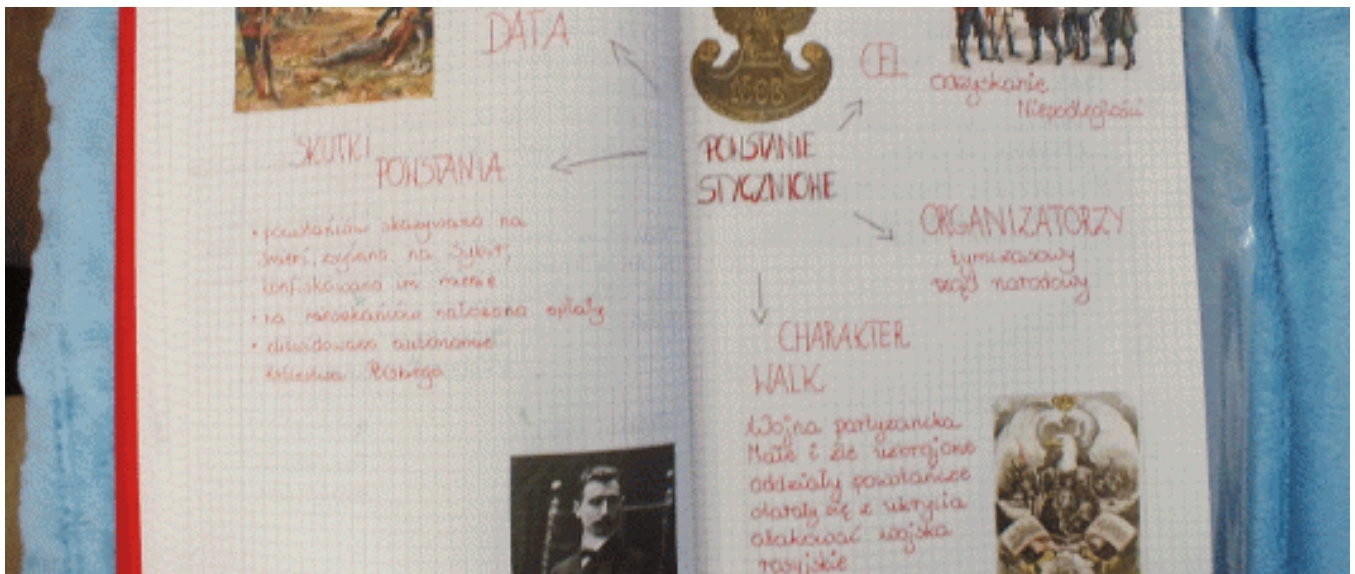 DATA
SKUTKI
POWSTANIA
• powstańców skazywano na
śmierć, zsyłano na Sybir,
konfiskowano im mienie
• na mieszkańców nałożono opłaty
• zlikwidowano autonomię
Królestwa Polskiego
POWSTANIE
STYCZNIOWE
CEL
Odzyskanie
Niepodległości
ORGANIZATORZY
tymczasowy
rząd narodowy
CHARAKTER
WALK
Wojna partyzancka
Małe i źle uzbrojone
oddziały powstańcze
starały się z ukrycia
atakować wojska
rosyjskie